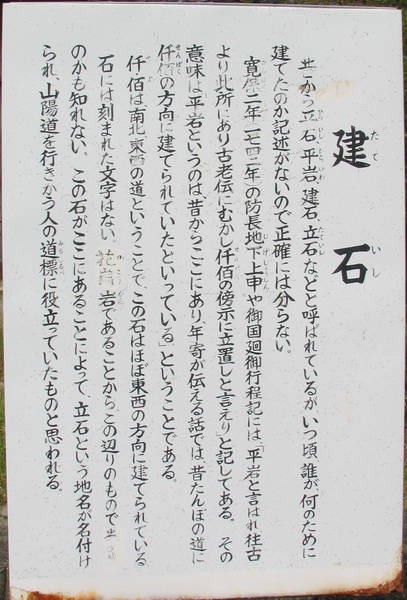 建石
たて いし
立石、平岩、建石、立石などと呼ばれているがいつ頃誰が何のために
建てたのか記述がないので正確には分らない。
寛保二年(一七四二年)の防長地下上申や御国廻御行程記には「平岩と言はれ往古
より此所にあり古老伝にむかし仟佰の傍示に立置しと言えり」と記してある。その
意味は平岩というのは昔からここにあり、年寄が伝える話では、昔たんぼの道に
仟佰の方向に建てられていたといっている」ということである。
仟佰は、南北東西の道ということで、この石はほぼ東西の方向に建てられている
石には刻まれた文字はない。岩であることから、この辺りのもので
のかも知れない。この石がここにあることによって、立石という地名が名付け
られ、山陽道を行きかう人の道標に役立っていたものと思われる。